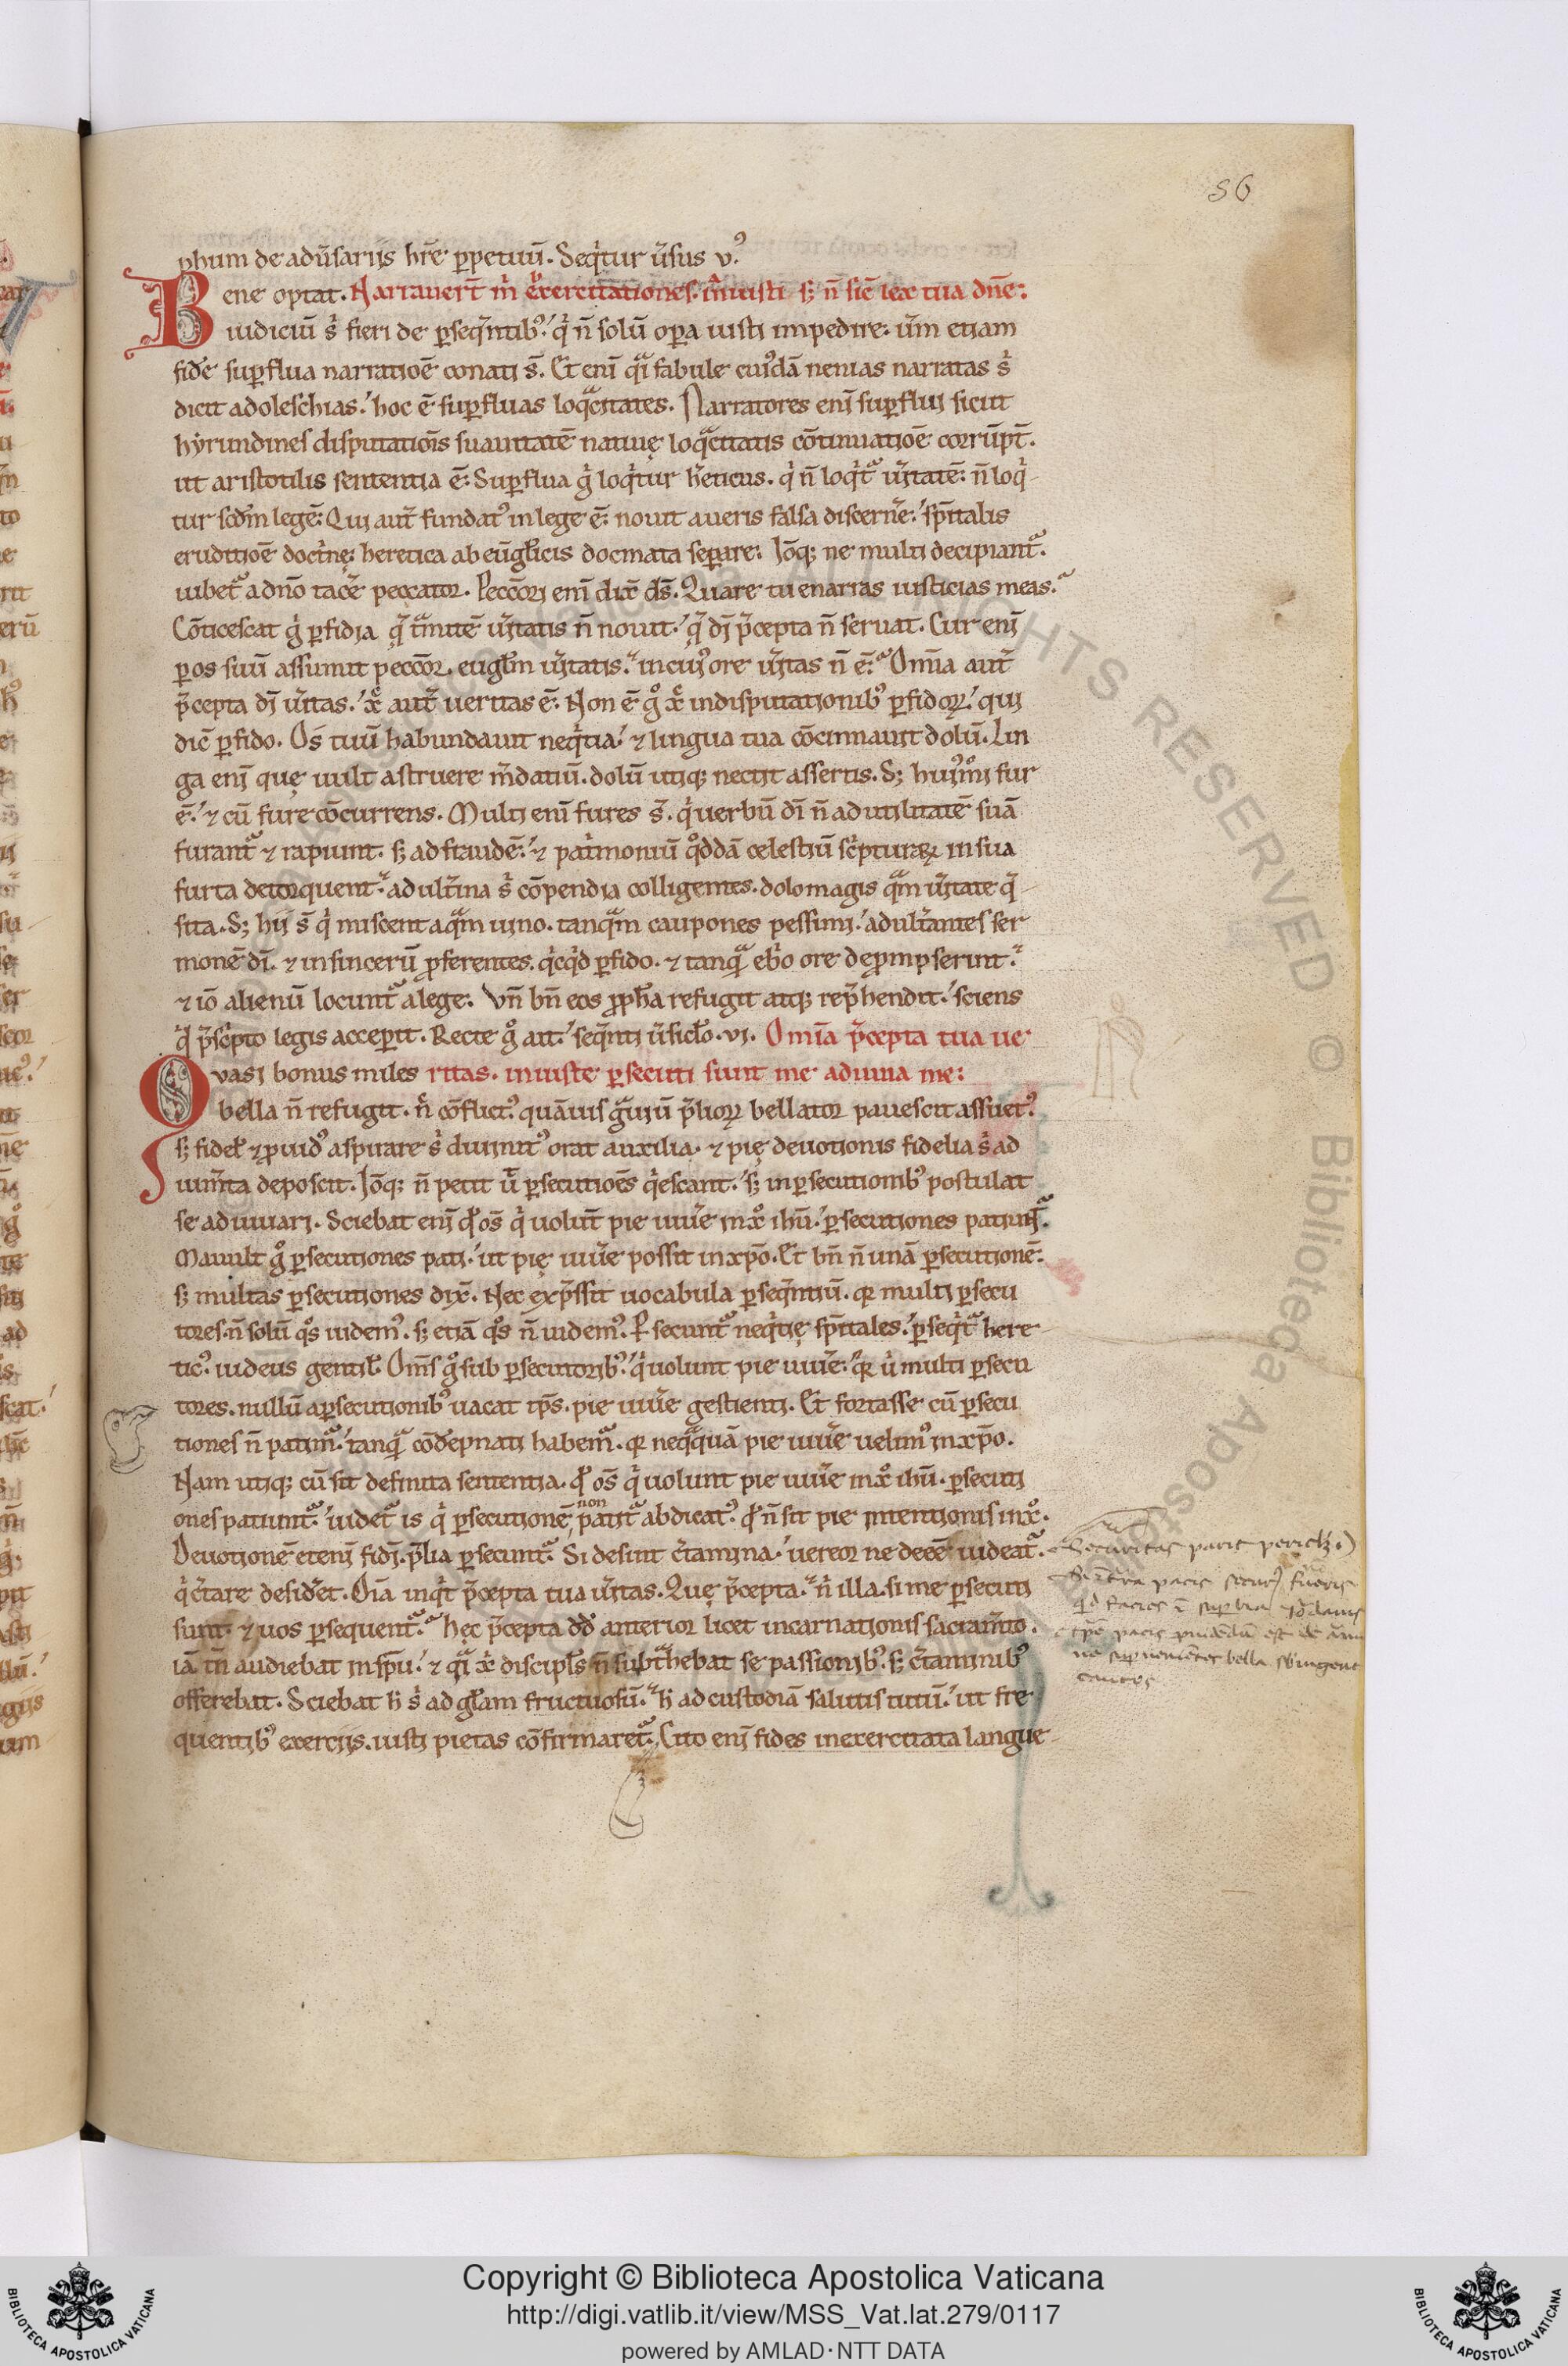 56
phum de adũsariis hr̃e ꝑpetuũ. Seqͥtur ũsus v.ꝰ
Bene optat. Narrauerт̃ m̃ exercitationes. iniusti sꝫ ñ sic̃ lex tua dñe:
iudiciũ s̃ fieri de ꝑseq̃ntibꝰ. qͥ ñ solũ oꝑa iusti impedire: ũm etiam
fide suꝑflua narratioẽ conati s̃. Et eni ̃ qͣi fabule cuiꝰdã nenias narratas s̃
dicit adoleschias. hoc ẽ suꝑfluas loqͣcitates. Narratores eni ̃ suꝑflui sicut
hyrundines disputatiõis suauitatẽ natiuę loqͣcitatis cõtinuatioẽ corrũpт̃.
ut aristotilis sententia ẽ: Suꝑflua gͥ loqͥtur h̃eticus. qͥ ñ loqͥtᷓ ũitatẽ: ñ loqͥ-
tur scd̃m legẽ: Qui aut̃ fundatꝰ in lege ẽ: nouit a ueris falsa discerñe. sp̃italis
eruditioẽ doctͥnę: heretica ab eũgl̃icis docmata seꝑare: Iõqꝫ ne multi decipiantᷓ.
iubetᷓ a dnõ tac̃e peccator. Pecc̃ori eni ̃ dix̃ ds̃. Quare tu enarras iusticias meas.
Cõticescat gͥ ꝑfidia q̃ tͣmitẽ ũitatis ñ nouit. q̃ di ̃ p̃cepta ñ seruat. Cur eni ̃
ꝑ os suũ assumit pecc̃or. eugl̃m ũitatis. in cuiꝰ ore ũitas ñ ẽ. Om̃ia aut̃
p̃cepta di ̃ ũitas. xp̃c aut̃ ueritas ẽ. Non ẽ gͦ xp̃c in disputationibꝰ ꝑfidoꝝ. qui
dic̃ ꝑfido. Os tuũ habundauit neqͥtia. ⁊ lingua tua cõcinnauit dolũ. Lin
ga eni ̃ quę uult astruere m̃datiũ. dolũ utiqꝫ nectit assertis. Sꝫ huiꝰmͦi fur
ẽ. ⁊ cũ fure cõcurrens. Multi eni ̃ fures s̃. qͥ uerbũ di ̃ ñ ad utilitatẽ suã
furantᷓ ⁊ rapiunt. sꝫ ad fraudẽ. ⁊ patͥmoniũ qͦddã celestiũ scͥpturaꝝ in sua
furta detorquent. adult̃ina s̃ cõpendia colligentes. dolo magis qͣm ũitate q̃-
sita. Sꝫ hii s̃ qͥ miscent aqͣm uino. tanqͣm caupones pessimi. adult̃antes ser
monẽ di ̃. ⁊ insincerũ ꝓferentes. qͥcqͥd ꝑfido. ⁊ tanqͣ ebͥo ore deꝓmpserint.
⁊ iõ alienũ locuntᷓ a lege. Vñ bñ eos ꝓph̃a refugit atqꝫ rep̃hendit. sciens
qͥd p̃scͥpto legis acceꝑit. Recte gͦ ait. seq̃nti ũsicl̃o. vi. Om̃ia p̃cepta tua ue
Qvasi bonus miles ritas. iniuste ꝑsecuti sunt me adiuua me:
bella ñ refugit. ñ cõflictꝰ quãuis gͣuiũ p̃lioꝝ bellator pauescit assuetꝰ.
sꝫ fidel̃ ⁊ ꝓuidꝰ aspirare s̃ diuinitꝰ orat auxilia. ⁊ pię deuotionis fidelia s̃ ad
ium̃ta deposcit. Iõqꝫ ñ petit ut̃ ꝑsecutioẽs qͥescant. sꝫ in ꝑsecutionibꝰ postulat
se adiuuari. Sciebat eni ̃ qd̃ os̃ qͥ uolunт̃ pie uiũe in xp̃o ihũ. ꝑsecutiones patiunтᷓ.
Mauult gͦ ꝑsecutiones pati. ut pię uiũe possit in xp̃o. Et bñ ñ unã ꝑsecutionẽ.
sꝫ multas ꝑsecutiones dix̃. Nec exp̃ssit uocabula ꝑseq̃ntiũ. qꝛ multi ꝑsecu
tores. ñ solũ qͦs uidemꝰ. sꝫ etiã qͦs ñ uidemꝰ. Ꝑsecuntᷓ neqͥtię sp̃itales. ꝑseqͥtᷓ here-
ticꝰ. iudeus gentil̃. Om̃s gͦ sub ꝑsecutoribꝰ. qͥ uolunt pie uiũe. qꝛ ũ multi ꝑsecu
tores. nullũ a ꝑsecutionibꝰ uacat tp̃s. pie uiũe gestienti. Et fortasse cũ ꝑsecu
tiones ñ patimᷓ. tanqͣ cõdepnati habemᷓ. qꝛ neqͣquã pie uiũe uelimꝰ in xp̃o.
Nam utiqꝫ cũ sit definita sententia. qd̃ os̃ qͥ uolunt pie uiũe in xp̃o ihũ. ꝑsecuti
ones patiuntᷓ. uidetᷓ is qͥ ꝑsecutionẽ non patitᷓ abdicatꝰ. qd̃ ñ sit pie intentionis in xp̃o.
Deuotionẽ eteni ̃ fidi ̃. p̃lia ꝑsecuntᷓ. Si desint c̃tamina. uereor ne deeẽ uideatᷓ.
qͥ c̃tare desid̃et. Oĩa inqͥt p̃cepta tua ũitas. Quę p̃cepta. ñ illa. si me ꝑsecuti
sunt. ⁊ uos ꝑsequentᷓ. hęc p̃cepta dd̃ anterior licet incarnationis sacram̃to.
iã tñ audiebat in sp̃u. ⁊ qͣi xp̃i discipl̃s ñ subtͣhebat se passionibꝰ. sꝫ c̃taminibꝰ
offerebat. Sciebat h̃ s̃ ad gl̃am fructuosũ. h̃ ad custodiã salutis tutũ. ut fre
quentibꝰ exerciis. iusti pietas cõfirmaretᷓ. Cito eni ̃ fides inexercitata langue-
Securitas parit pericl̃ꝫ.
pacis
facies ĩ suꝑbia Iordanis
tp̃e pacis ꝓuidẽdũ est
bella
cautos
Copyright © Biblioteca Apostolica Vaticana
http://digi.vatlib.it/view/MSS_Vat.lat.279/0117
powered by AMLAD·NTT DATA
BIBLIOTECA APOSTOLICA VATICANA
BIBLIOTECA APOSTOLICA VATICANA